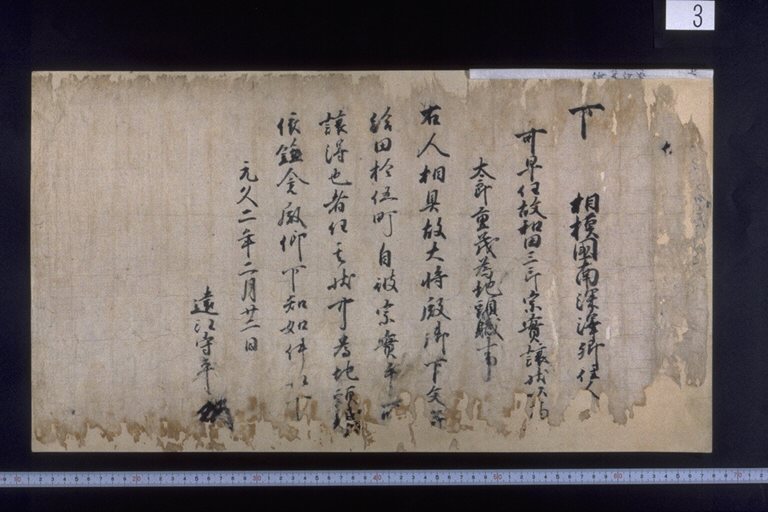 3
下 相模國南深澤郷住人
可早任故和田三郎宗實讓狀以
太郎重茂為地頭職事
右人相具故大将殿御下文并
給田拾伍町自彼宗實手所
讓得也者任其狀可為地頭職
依鎌倉殿仰下知如件以下
元久二年二月廿二日
遠江守平